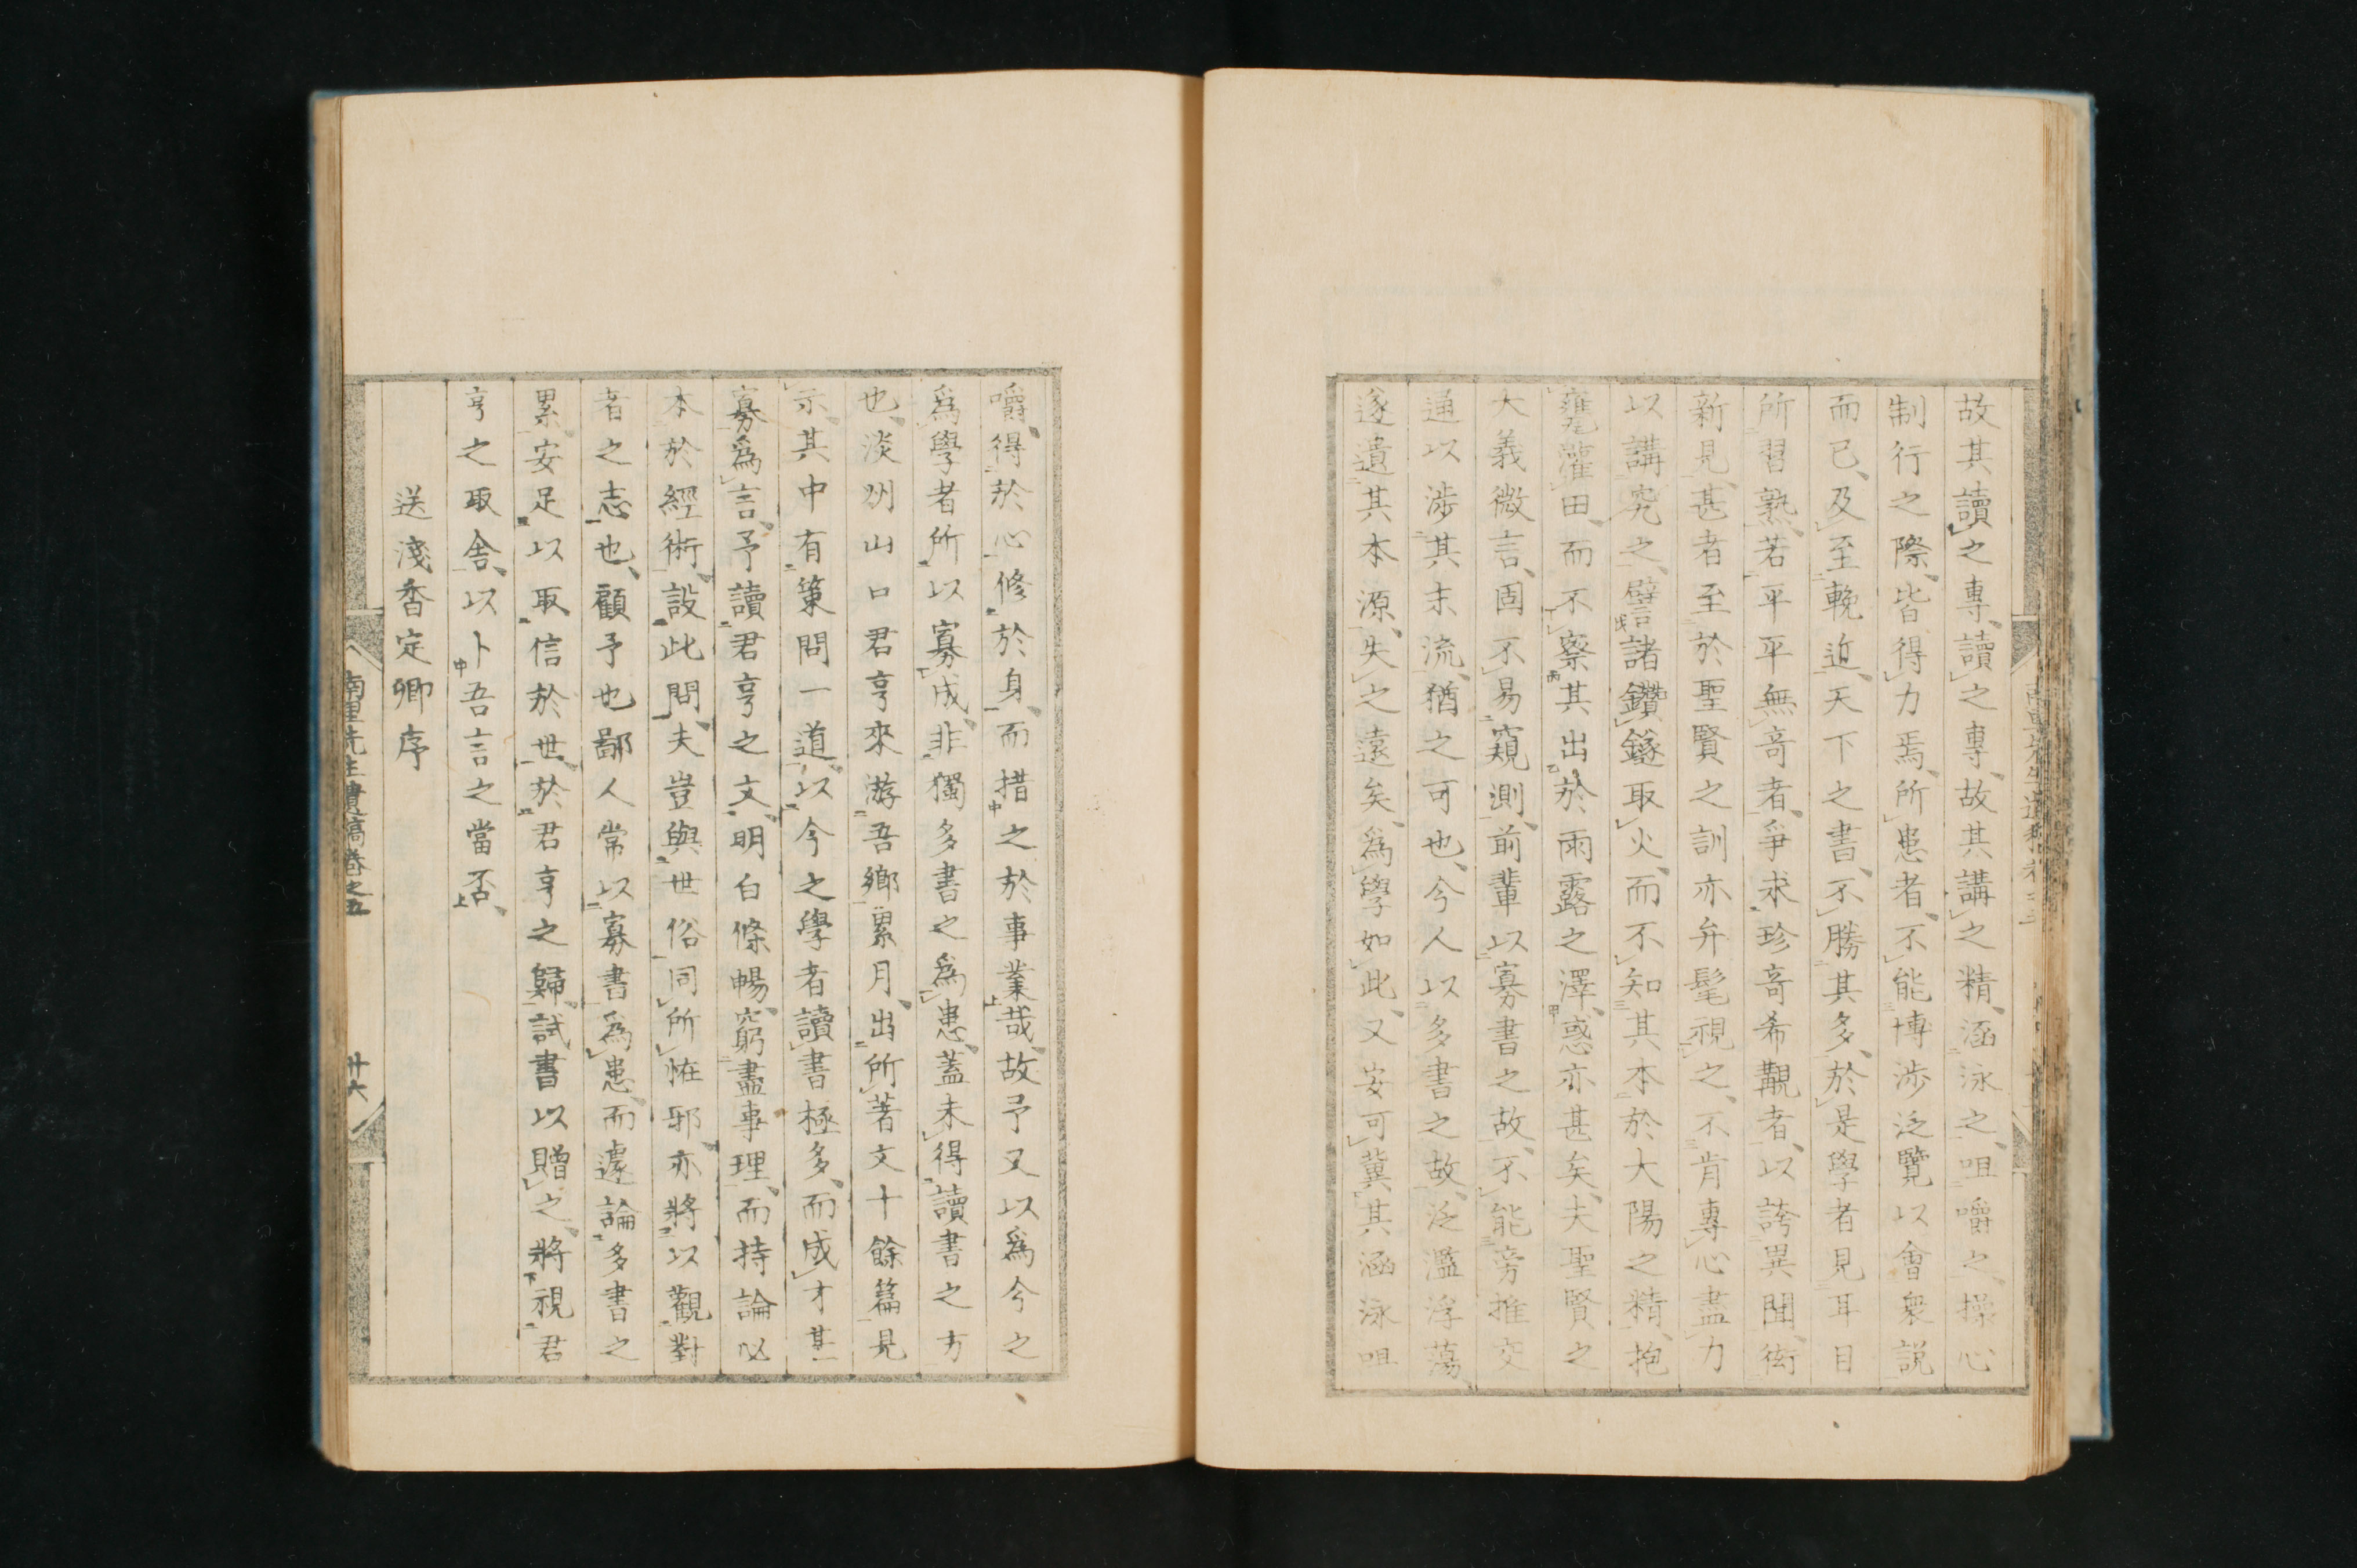 故其讀之專讀之專故其講之精涵泳之咀嚼之操心
制行之際皆得力焉所患者不能博涉泛覽以會衆説
而已及至輓近天下之書不勝其多於是學者見耳目
所習熟若平平無奇者爭求珍奇希覯者以誇異聞衒
新見甚者至於聖賢之訓亦弁髦視之不肯專心盡力
以講究之譬諸鑽鐩取火而不知其本於大陽之精抱
甕灌田而不察其出於雨露之澤惑亦甚矣夫聖賢之
大義微言固不易窺測前輩以寡書之故不能旁推交
通以渉其末流猶之可也今人以多書之故泛濫浮蕩
遂遺其本源失之遠矣為學如此又安可冀其涵泳咀
嚼得於心修於身而措之於事業哉故予又以爲今之
爲學者所以寡成非獨多書之爲患蓋未得讀書之方
也淡州山口君亨來游吾鄉累月出所著文十餘篇見
示其中有策問一道以今之學者讀書極多而成才甚
寡爲言予讀君亨之文明白條暢窮盡事理而持論必
本於經術設此問夫豈與世俗同所恠邪亦將以觀對
者之志也顧予也鄙人常以寡書爲患而遽論多書之
累安足以取信於世於君亨之歸試書以贈之將視君
亨之取舍以卜吾言之當否
送淺香定卿序
南里先生遺稿卷之五
廿六